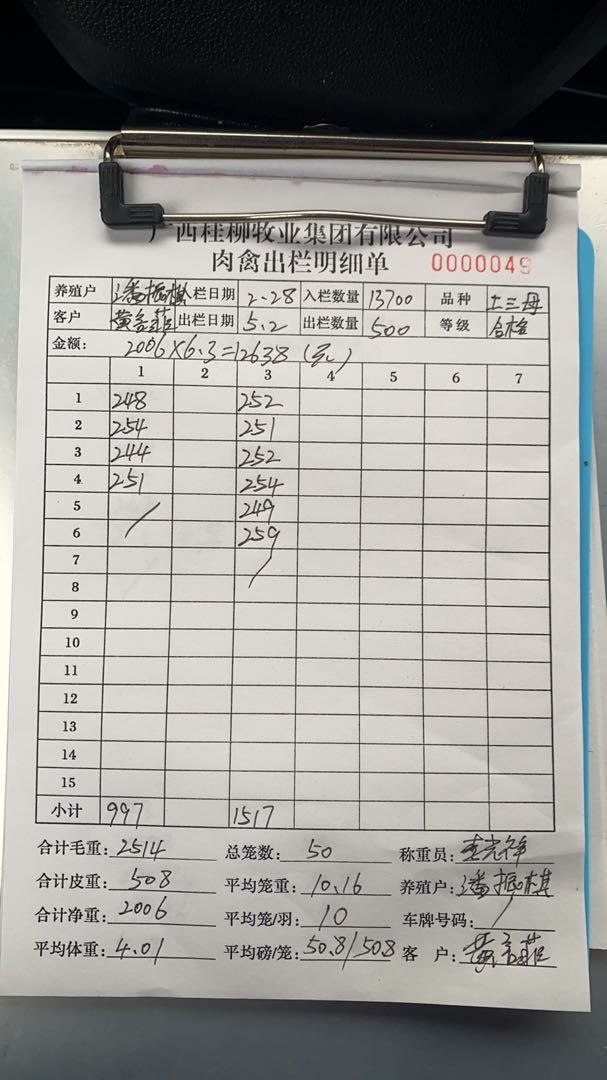 广西桂柳牧业集团有限公司
肉禽出栏明细单 0000049
养殖户 潘振棋 入栏日期 2.28 入栏数量 13700 品种 土三母
客户 出栏日期 5.2 出栏数量 500 等级 合格
金额: 2006×6.3=12638(元)
1 2 3 4 5 6 7
1 248 252
2 254 251
3 244 252
4 251 254
5 249
6 259
7
8
9
10
11
12
13
14
15
小计 997 1517
合计毛重: 2514 总笼数: 50 称重员:
合计皮重: 508 平均笼重: 10.16 养殖户: 潘振棋
合计净重: 2006 平均笼/羽: 10 车牌号码: /
平均体重: 4.01 平均磅/笼: 50.8/508 客 户: